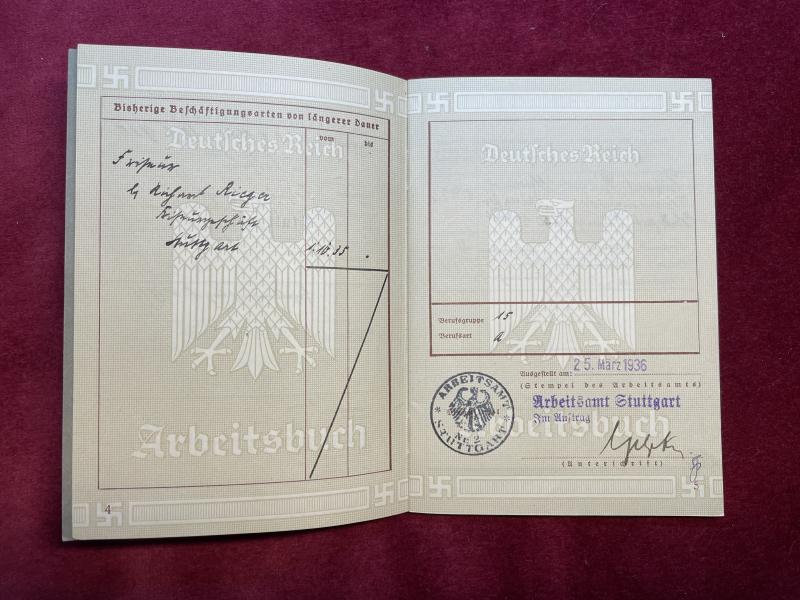 Bisherige Beschäftigungsarten von längerer Dauer
Deutsches Reich
vom
bis
Friseur
b/ Richard Rieger
Friseurgeschäft
Stuttgart
1.10.35
Arbeitsbuch
4
Deutsches Reich
Berufsgruppe 15
Berufsart a
Ausgestellt am: 25. März 1936
(Stempel des Arbeitsamts)
Arbeitsamt Stuttgart
Im Auftrag
ARBEITSAMT
STUTTGART
Nr. 2
Arbeitsbuch
(Unterschrift)
5